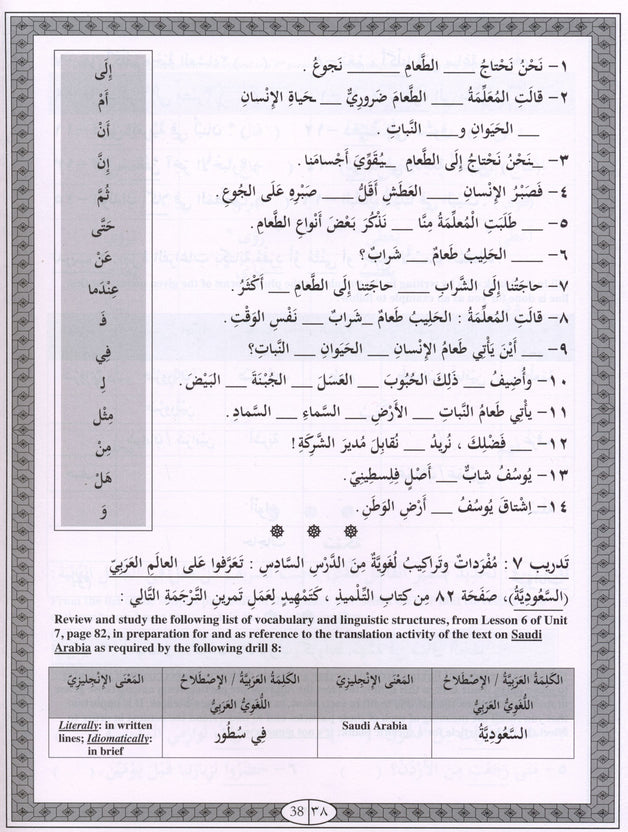 ١- نَحْنُ نَحْتاجُ ____ الطَّعامِ ____ نَجوعُ .
٢- قالَتِ المُعَلِّمَةُ ____ الطَّعامَ ضَرورِيٌّ ___ ـحَياةِ الإنْسانِ
___ الحَيَوانِ و___ النَّباتِ .
٣- __ـنَحْنُ نَحْتاجُ إلَى الطَّعامِ ___ـيُقَوِّيَ أَجْسامَنا.
٤- فَصَبْرُ الإنْسانِ ____ العَطَشِ أَقَلُّ ____ صَبْرِهِ عَلَى الجُوعِ.
٥- ___ طَلَبَتِ الْمُعلِّمَةُ مِنَّا ___ نَذْكُرَ بَعْضَ أَنْواعِ الطَّعامِ.
٦- ____ الحَلِيبُ طَعامٌ ____ شَرابٌ؟
٧- حاجَتُنا إلَى الشَّرابِ ____ حاجَتِنا إلَى الطَّعامِ ___ أَكْثَرُ.
٨- قالَتِ المُعَلِّمَةُ : الحَلِيبُ طَعامٌ __شَرابٌ ____ نَفْسِ الوَقْتِ.
٩- ___ أَيْنَ يَأْتِي طَعامُ الإنْسانِ ___ الحَيَوانِ ___ النَّباتِ؟
١٠- وأُضِيفُ ___ ذَلِكَ الحُبُوبَ ___ العَسَلَ ___ الجُبْنَةَ ___ البَيْضَ.
١١- يأْتِي طَعامُ النَّباتِ ___ الأَرْضِ ___ السَّماءِ ___ السَّمادِ.
١٢- ___ فَضْلِكَ ، نُرِيدُ ___ نُقابِلَ مُديرَ الشَّرِكَةِ!
١٣- يُوسُفُ شابٌّ ___ أَصْلٍ فِلِسطِينِيّ.
١٤- اِشْتاقَ يُوسُفُ ___ أَرْضِ الوَطَنِ.
إِلَى
أَمْ
أَنْ
إِنَّ
ثُمَّ
حَتَّى
عَنْ
عِنْدَما
فَ
فِي
لِ
مِثْل
مِنْ
هَلْ
وَ
تَدريب ٧ : مُفْرَداتٌ وتَراكِيبُ لُغَوِيَّةٌ مِنَ الدَّرْسِ السَّادِسِ : تَعَرَّفوا عَلى العالَمِ العَرَبِيّ
(السَّعُودِيَّةُ)، صَفْحَة ٨٢ مِن كِتابِ التِّلْميذِ ، كَتَمْهِيدٍ لِعَمَلِ تَمرينِ التَّرْجَمَةِ التَّالِي :
Review and study the following list of vocabulary and linguistic structures, from Lesson 6 of Unit
7, page 82, in preparation for and as reference to the translation activity of the text on Saudi
Arabia as required by the following drill 8:
الكَلِمَةُ العَرَبِيَّةُ / الإصْطِلاحُ اللُّغَوِيُّ العَرَبِيُّ
المَعْنَى الإنْجلِيزِيّ
الكَلِمَةُ العَرَبِيَّةُ / الإصْطِلاحُ اللُّغَوِيُّ العَرَبِيُّ
المَعْنَى الإنْجلِيزِيّ
السَّعُودِيَّةُ
Saudi Arabia
فِي سُطُور
Literally: in written
lines; Idiomatically:
in brief
38 ٣٨